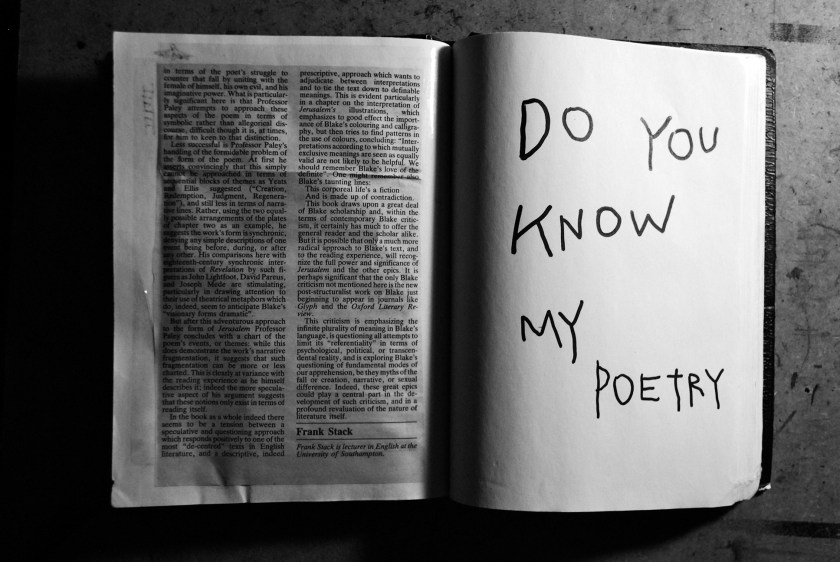 in terms of the poet's struggle to
counter that fall by uniting with the
female of himself, his own evil, and his
imaginative power. What is particular-
ly significant here is that Professor
Paley attempts to approach these
aspects of the poem in terms of
symbolic rather than allegorical dis-
course, difficult though it is, at times,
for him to keep to that distinction.
Less successful is Professor Paley's
handling of the formidable problem of
the form of the poem. At first he
argues convincingly that this simply
cannot be approached in terms of
sequential blocks of themes as Yeats
and Ellis suggested ("Creation,
Redemption, Judgment, Regenera-
tion"), and still less in terms of narra-
tive lines. Rather, using the two equal-
ly possible arrangements of the plates
of chapter two as an example, he
suggests the work's form is synchronic,
denying any simple descriptions of one
event being before, during, or after
any other. His comparisons here with
eighteenth-century synchronic inter-
pretations of Revelation by such fi-
gures as John Lightfoot, David Pareus,
and Joseph Mede are stimulating,
particularly in drawing attention to
their use of theatrical metaphors which
do, indeed, seem to anticipate Blake's
"visionary forms dramatic".
But after this adventurous approach
to the form of Jerusalem Professor
Paley concludes with a chart of the
poem's events, or themes: while this
does demonstrate the work's narrative
fragmentation, it suggests that such
fragmentation can be more or less
charted. This is clearly at variance with
the reading experience as he himself
describes it; indeed the more specula-
tive aspect of his argument suggests
that these notions only exist in terms of
reading itself.
In the book as a whole indeed there
seems to be a tension between a
speculative and questioning approach
which responds positively to one of the
most "de-centred" texts in English
literature, and a descriptive, indeed
prescriptive, approach which wants to
adjudicate between interpretations
and to tie the text down to definable
meanings. This is evident particularly
in a chapter on the interpretation of
Jerusalem's illustrations, which
emphasizes to good effect the import-
ance of Blake's colouring and calligra-
phy, but then tries to find patterns in
the use of colours, concluding: "Inter-
pretations according to which mutually
exclusive meanings are seen as equally
valid are not likely to be helpful. We
should remember Blake's love of the
definite". One might remember also
Blake's taunting lines:
This corporeal life's a fiction
And is made up of contradiction.
This book draws upon a great deal
of Blake scholarship and, within the
terms of contemporary Blake critic-
ism, it certainly has much to offer the
general reader and the scholar alike.
But it is possible that only a much more
radical approach to Blake's text, and
to the reading experience, will recog-
nize the full power and significance of
Jerusalem and the other epics. It is
perhaps significant that the only Blake
criticism not mentioned here is the new
post-structuralist work on Blake just
beginning to appear in journals like
Glyph and the Oxford Literary Re-
view.
This criticism is emphasizing the
infinite plurality of meaning in Blake's
language, is questioning all attempts to
limit its "referentiality" in terms of
psychological, political, or transcen-
dental reality, and is exploring Blake's
questioning of fundamental modes of
our apprehension, be they myths of the
fall or creation, narrative, or sexual
difference. Indeed, these great epics
could play a central part in the de-
velopment of such criticism, and in a
profound revaluation of the nature of
literature itself.
Frank Stack
Frank Stack is lecturer in English at the
University of Southampton.
DO YOU
KNOW
MY
POETRY